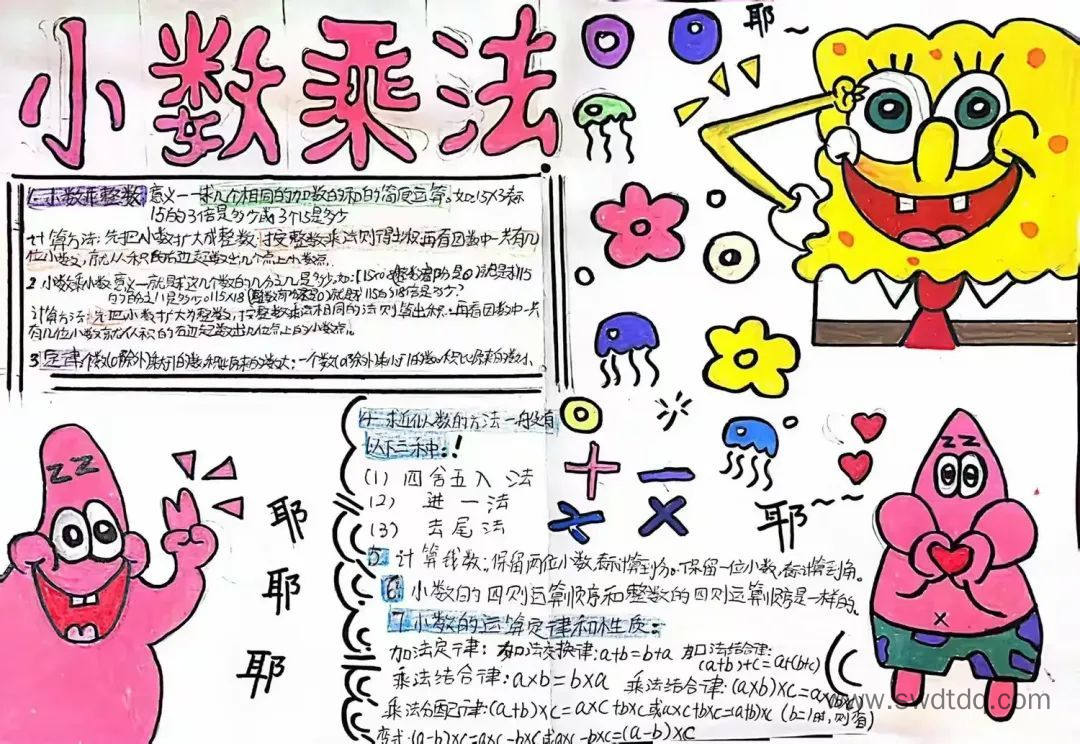 小数乘法
耶~
1.小数乘整数 意义一求几个相同的加数的和的简便运算。如:1.5×3表示
1.5的3倍是多少或3个1.5是多少
计算方法:先把小数扩大成整数,按整数乘法则得出积,再看因数中一共有几
位小数,就从积的右边起数出几个点上小数点。
2 小数乘小数 意义一就是求这几个数的几分之几是多少。如:1.5×0.8 就是求1.5
的十分之八是多少。1.5×1.8 就是求1.5的1.8倍是多少?
计算方法:先把小数扩大为整数,按整数乘法相同的法则算出积。再看因数中一共
有几位小数就从积的右边起数出几位点上的小数点。
3 定律个数(0除外)乘于1的数积比原来的数大:一个数(0除外)乘小于1的数积比原来的数小。
4.求近似数的方法一般没有
以下三种:!
(1)四舍五入 法
(2) 进 一 法
(3) 去 尾 法
耶
耶
耶
耶~~
5 计算钱数:保留两位小数,表示计算到分。保留一位小数,表示计算到角。
6 小数的四则运算顺序和整数的四则运算顺序是一样的。
7 小数的运算定律和性质:
加法定律: 加法交换律:a+b=b+a 加法结合律:
(a+b)+c=a+(b+c)
乘法结合律:a×b=b×a 乘法结合律:(a×b)×c=a×
乘法分配律:(a+b)×c=a×c+b×c或a×c+b×c=(a+b)×c (b=1时,则省)
变式:(a-b)×c=a×c-b×c或a×c-b×c=(a-b)×c
www.swdtdq.com